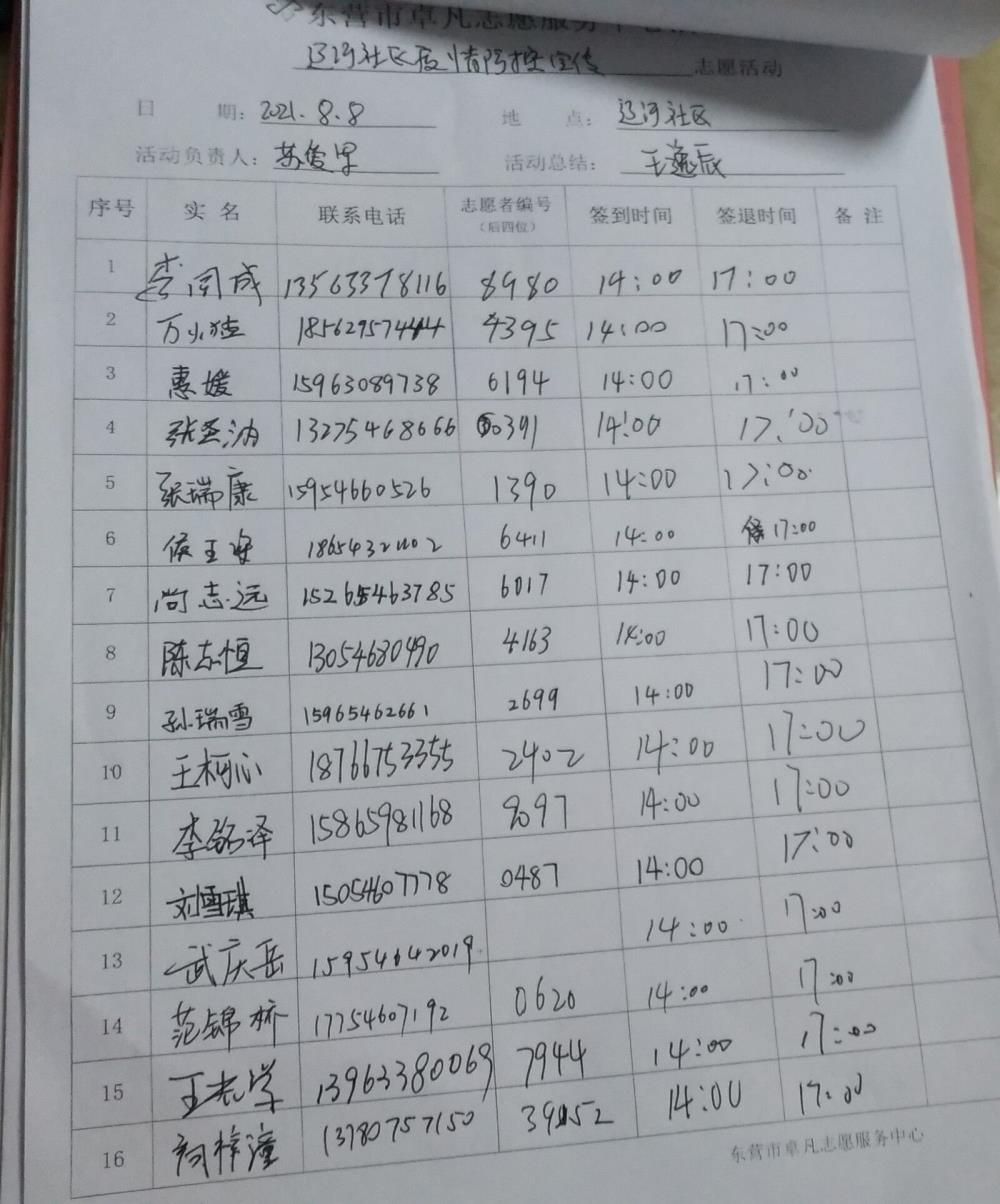 东营市卓凡志愿服务中心
辽河社区疫情防控宣传 志愿活动
日 期: 2021.8.8 地 点: 辽河社区
活动负责人: 苏俊军 活动总结: 王逸辰
序号 实名 联系电话 志愿者编号 (后四位) 签到时间 签退时间 备注
1 李同成 13563378116 8980 14:00 17:00
2 185629574444 4395 14:00 17:00
3 惠媛 15963089738 6194 14:00 17:00
4 13275468666 0391 14:00 17:00
5 张瑞康 15954660526 1390 14:00 17:00
6 6411 14:00 17:00
7 尚志远 15265463785 6017 14:00 17:00
8 陈志恒 13054680490 4163 14:00 17:00
9 孙瑞雪 15965462661 2699 14:00 17:00
10 王柯心 18766753355 2402 14:00 17:00
11 李铭泽 15865981168 8097 14:00 17:00
12 刘雪琪 15054607778 0487 14:00 17:00
13 武庆岳 15954642019 14:00 17:00
14 范锦桥 17754607192 0620 14:00 17:00
15 王志学 13963380069 7944 14:00 17:00
16 13780757150 14:00 17:00
东营市卓凡志愿服务中心